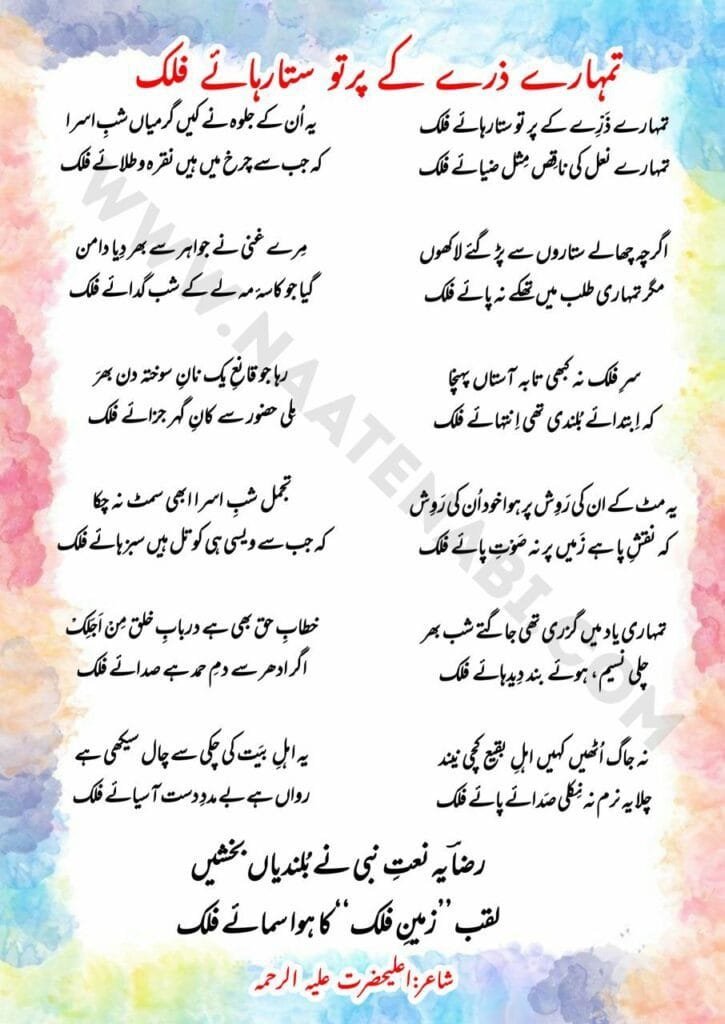 تمہارے ذرے کے پرتو ستارہائے فلک
تمہارے ذَرِّے کے پرتو ستارہائے فلک
تمہارے نعل کی ناقِص مِثل ضیائے فلک
اگرچہ چھالے ستاروں سے پڑ گئے لاکھوں
مگر تمہاری طلب میں تھکے نہ پائے فلک
سرِ فلک نہ کبھی تابہ آستاں پہنچا
کہ اِبتدائے بُلندی تھی اِنتہائے فلک
یہ مٹ کے ان کی رَوِش پر ہوا خود اُن کی رَوِش
کہ نقشِ پا ہے زَمیں پر نہ صَوْتِ پائے فلک
تمہاری یاد میں گزری تھی جاگتے شب بھر
چلی نسیم، ہوئے بند دِیدہائے فلک
نہ جاگ اُٹھیں کہیں اہلِ بقیع کچی نیند
چلا یہ نرم نہ نِکلی صَدائے پائے فلک
یہ اُن کے جلوہ نے کیں گرمیاں شبِ اسرا
کہ جب سے چرخ میں ہیں نقرہ وطلائے فلک
مِرے غنی نے جواہر سے بھر دِیا دامن
گیا جو کاسۂ مہ لے کے شب گدائے فلک
رہا جو قانعِ یک نانِ سوختہ دن بھر
ملی حضور سے کانِ گہر جزائے فلک
تجملِ شبِ اسرا ابھی سمٹ نہ چکا
کہ جب سے ویسی ہی کوتل ہیں سبزہائے فلک
خطابِ حق بھی ہے دربابِ خلق مِنْ اَجَلِکْ
اگر ادھر سے دمِ حمد ہے صدائے فلک
یہ اہلِ بیَت کی چکی سے چال سیکھی ہے
رواں ہے بے مددِ دست آسیائے فلک
رضاؔ یہ نعتِ نبی نے بُلندیاں بخشیں
لقب ’’زمینِ فلک‘‘ کا ہوا سمائے فلک
شاعر:اعلیحضرت علیہ الرحمہ
WWW.NAATENABI.COM